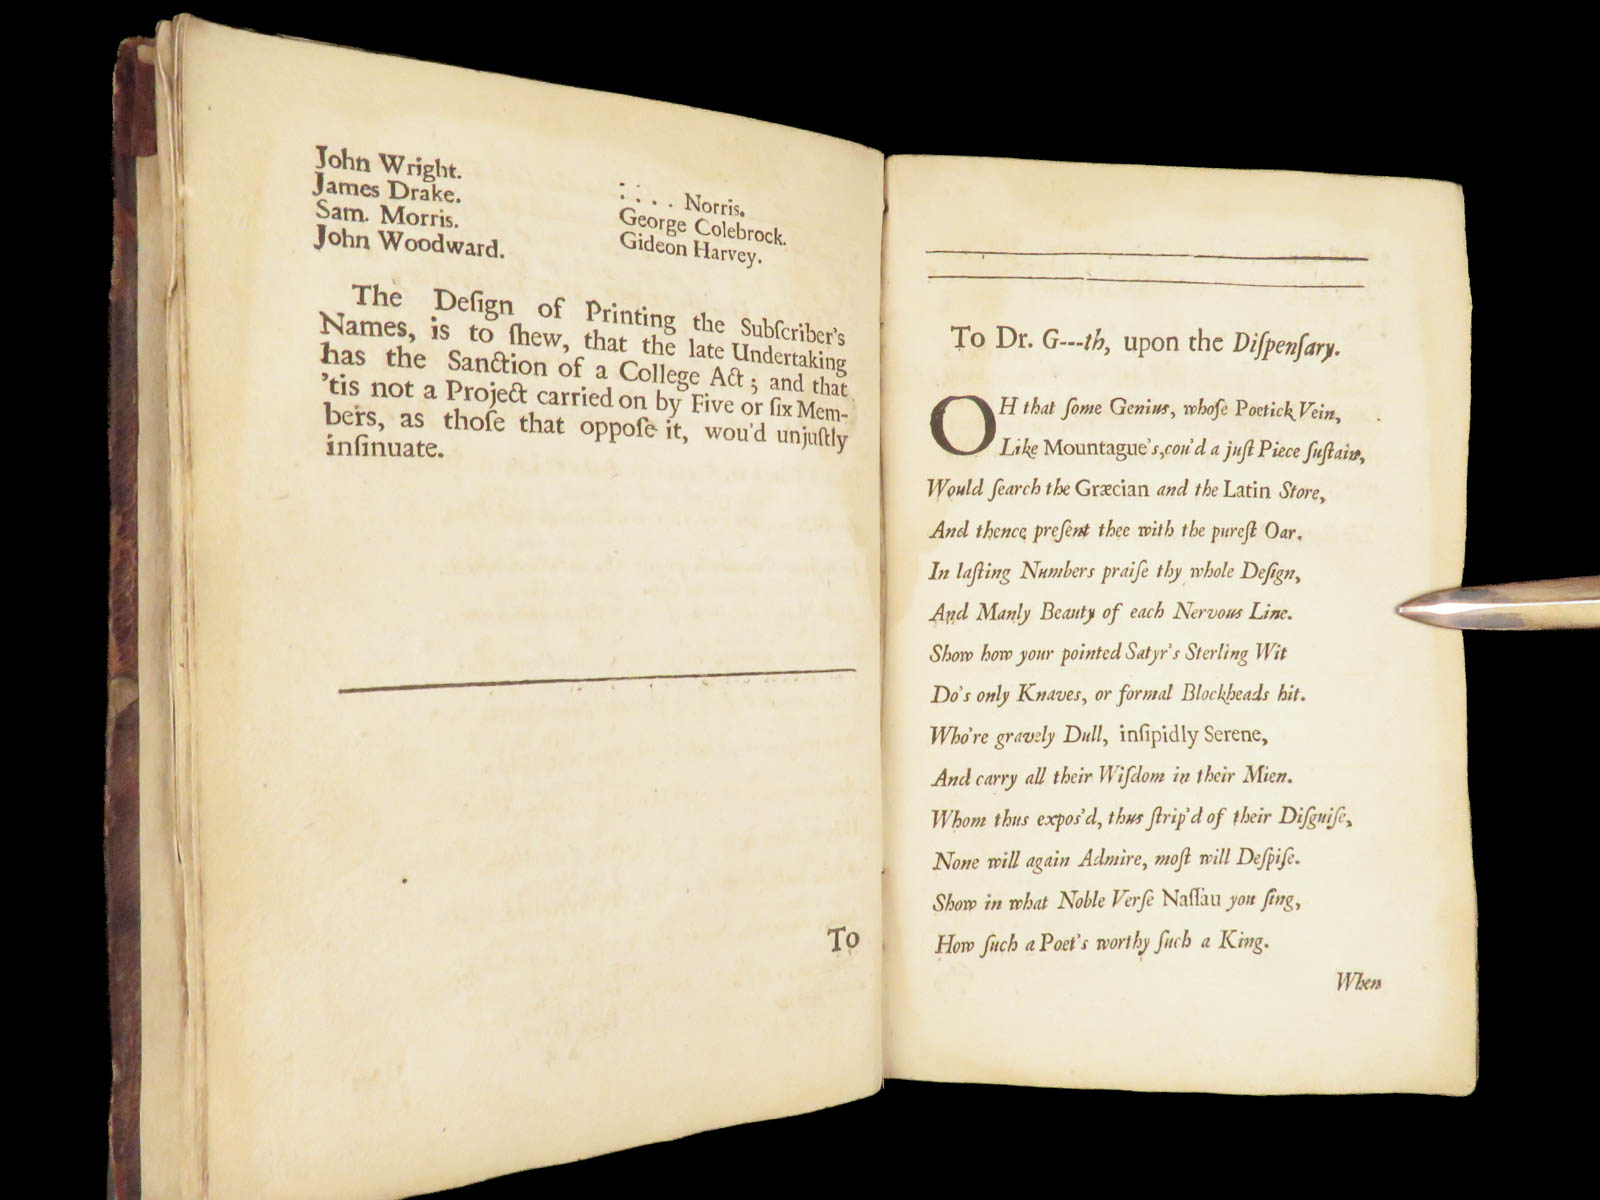 John Wright.
James Drake.
Sam. Morris.
John Woodward.
: : . . . Norris.
George Colebrock.
Gideon Harvey.
The Deſign of Printing the Subſcriber's
Names, is to ſhew, that the late Undertaking
has the Sanction of a College Act; and that
'tis not a Project carried on by Five or ſix Mem-
bers, as thoſe that oppoſe it, wou'd unjuſtly
inſinuate.
To
To Dr. G---th, upon the Diſpenſary.
OH that ſome Genius, whoſe Poetick Vein,
Like Mountague's, cou'd a juſt Piece ſuſtain,
Would ſearch the Græcian and the Latin Store,
And thence preſent thee with the pureſt Oar.
In laſting Numbers praiſe thy whole Deſign,
And Manly Beauty of each Nervous Line.
Show how your pointed Satyr's Sterling Wit
Do's only Knaves, or formal Blockheads hit.
Who're gravely Dull, inſipidly Serene,
And carry all their Wiſdom in their Mien.
Whom thus expos'd, thus ſtrip'd of their Diſguiſe,
None will again Admire, moſt will Deſpiſe.
Show in what Noble Verſe Naſſau you ſing,
How ſuch a Poet's worthy ſuch a King.
When